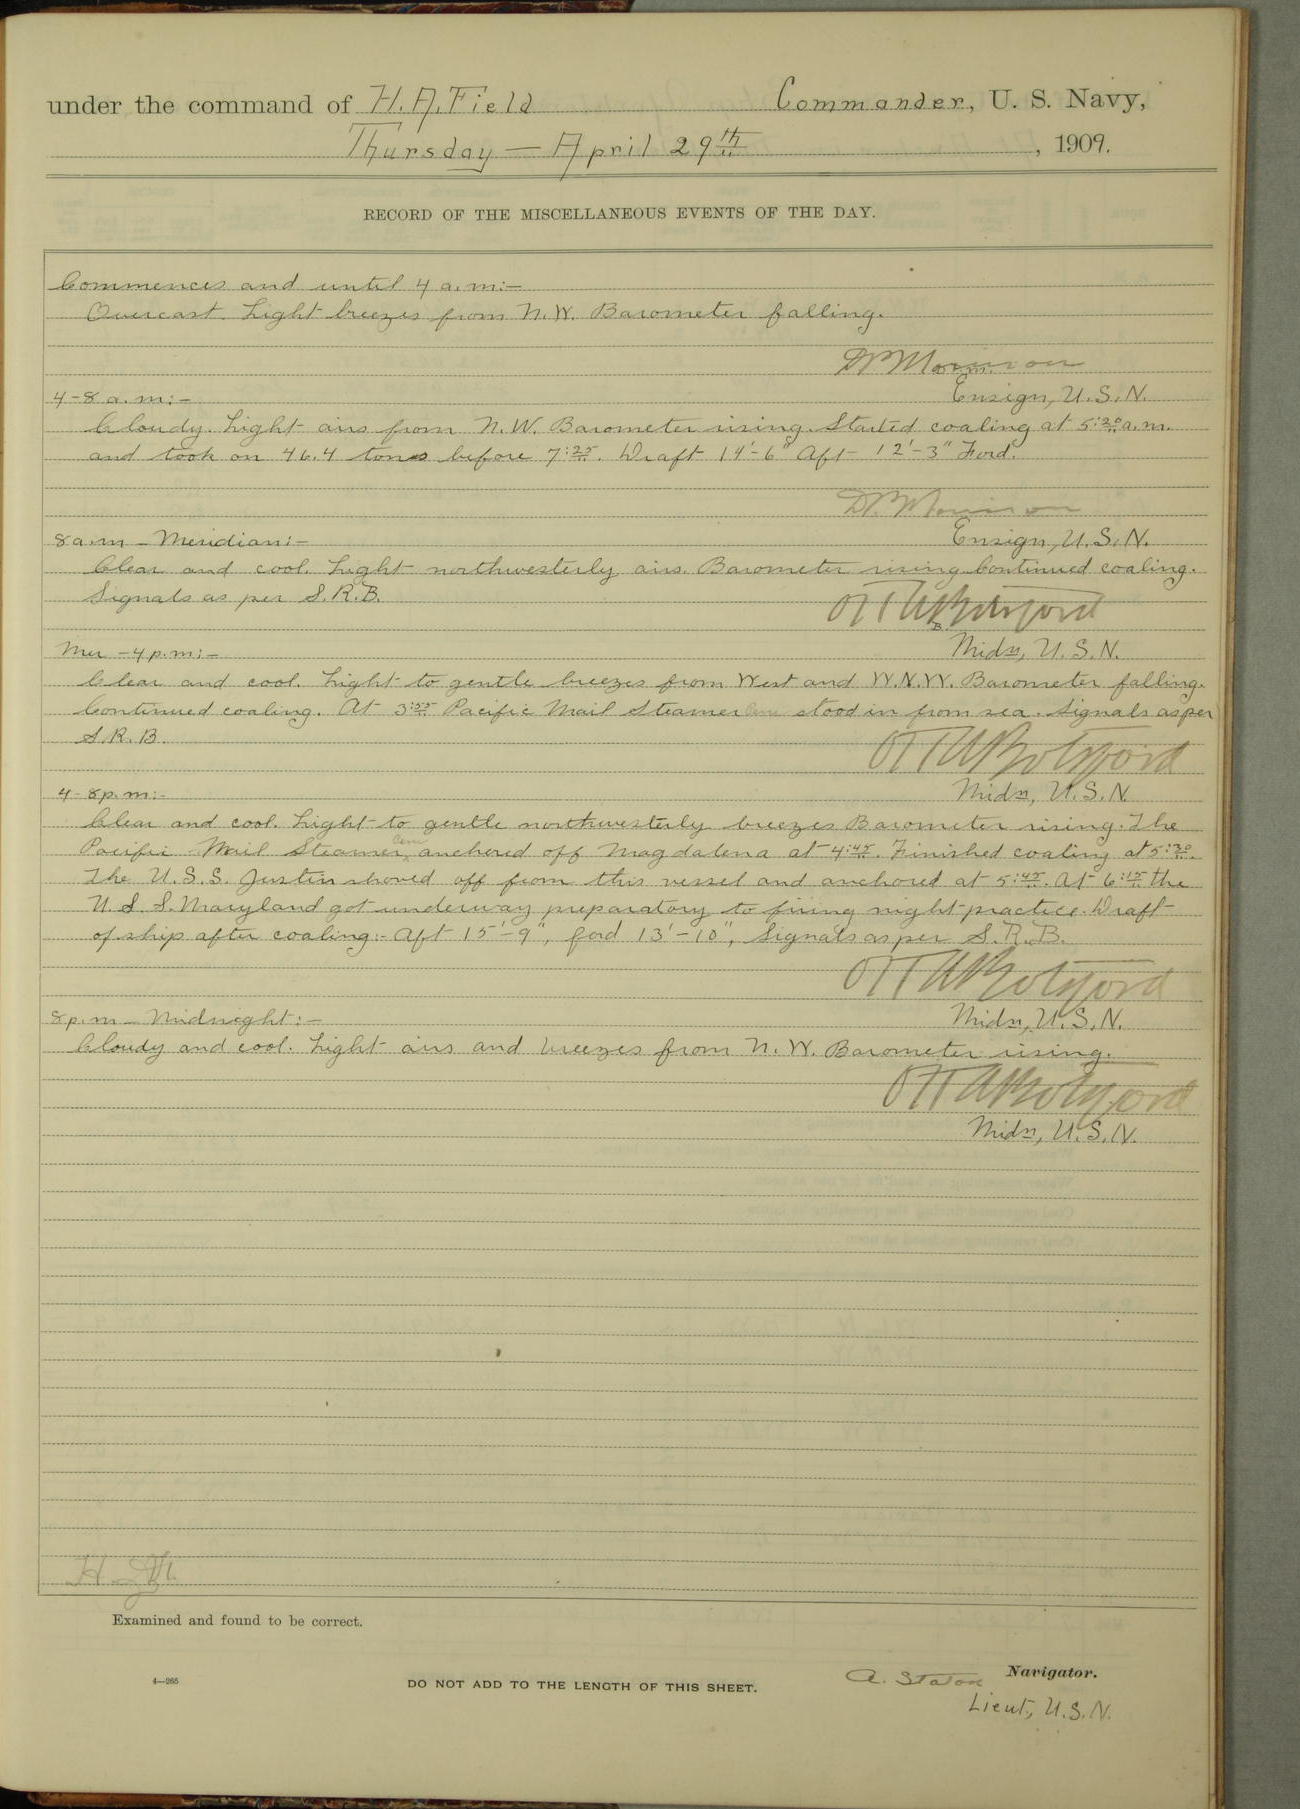 under the command of H. A. Field Commander, U. S. Navy,
Thursday — April 29th, 1909.
RECORD OF THE MISCELLANEOUS EVENTS OF THE DAY.
Commences and until 4 a.m:—
Overcast. Light breezes from N.W. Barometer falling.
Ensign, U.S.N.
4-8 a.m:—
Cloudy. Light airs from N.W. Barometer rising. Started coaling at 5:30 a.m.
and took on 46.4 tons before 7:25. Draft 14'-6" Aft 12'-3" Ford.
Ensign, U.S.N.
8 a.m — Meridian:—
Clear and cool. Light northwesterly airs. Barometer rising. Continued coaling.
Signals as per S.R.B.
Midn, U.S.N.
Mer — 4 p.m:—
Clear and cool. Light to gentle breezes from West and W.N.W. Barometer falling.
Continued coaling. At 3:55 Pacific Mail Steamer stood in from sea. Signals as per
S.R.B.
Midn, U.S.N.
4-8 p.m:-
Clear and cool. Light to gentle northwesterly breezes Barometer rising. The
Pacific Mail Steamer, anchored off Magdalena at 4:45. Finished coaling at 5:30.
The U.S.S. Justin shoved off from this vessel and anchored at 5:45. At 6:15 the
U.S.S. Maryland got underway preparatory to firing night practice. Draft
of ship after coaling:- Aft 15'-9", ford 13'-10", Signals as per S.R.B.
Midn, U.S.N.
8 p.m — Midnight:—
Cloudy and cool. Light airs and breezes from N.W. Barometer rising.
Midn, U.S.N.
Examined and found to be correct.
4—265
DO NOT ADD TO THE LENGTH OF THIS SHEET.
A. Staton Navigator.
Lieut, U.S.N.